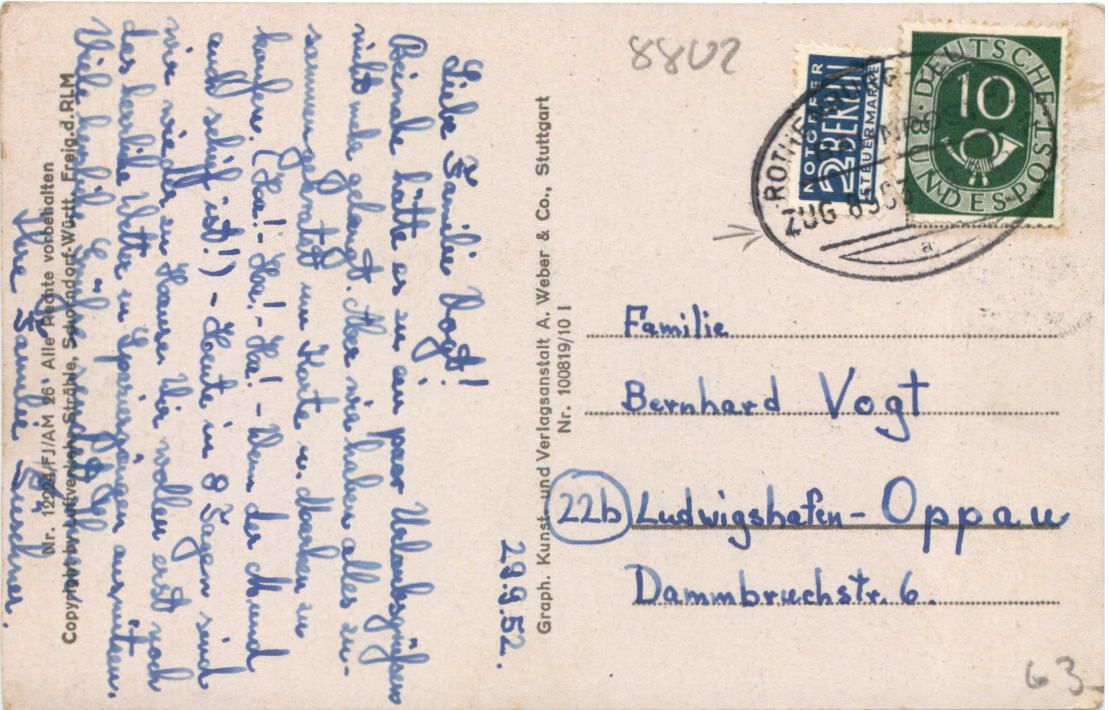 29.9.52.
Liebe Familie Vogt!
Beinahe hätte es zu ein paar Urlaubsgrüßen
nicht mehr gelangt. Aber wir haben alles zu-
sammengekratzt um Karte u. Marken zu
kaufen. (Ha!-Ha!-Ha! - Wenn der Mund
auch schief ist!) - Heute in 8 Tagen sind
wir wieder zu Hause. Wir wollen erst noch
das herrliche Wetter zu Spaziergängen ausnützen.
Viele herzliche Grüße sendet
Ihre Familie
Nr. 12924/FJ/AM 26 Alle Rechte vorbehalten
Copyright by Luftverkehr Strähle, Schorndorf-Württ. Freig.d.RLM
Graph. Kunst- und Verlagsanstalt A. Weber & Co., Stuttgart
Nr. 100819/10 I
8802
NOTOPFER
2 BERLIN
STEUERMARKE
DEUTSCHE
10
BUNDESPOST
ZUG
a
Familie
Bernhard Vogt
22b Ludwigshafen-Oppau
Dammbruchstr. 6.
63-